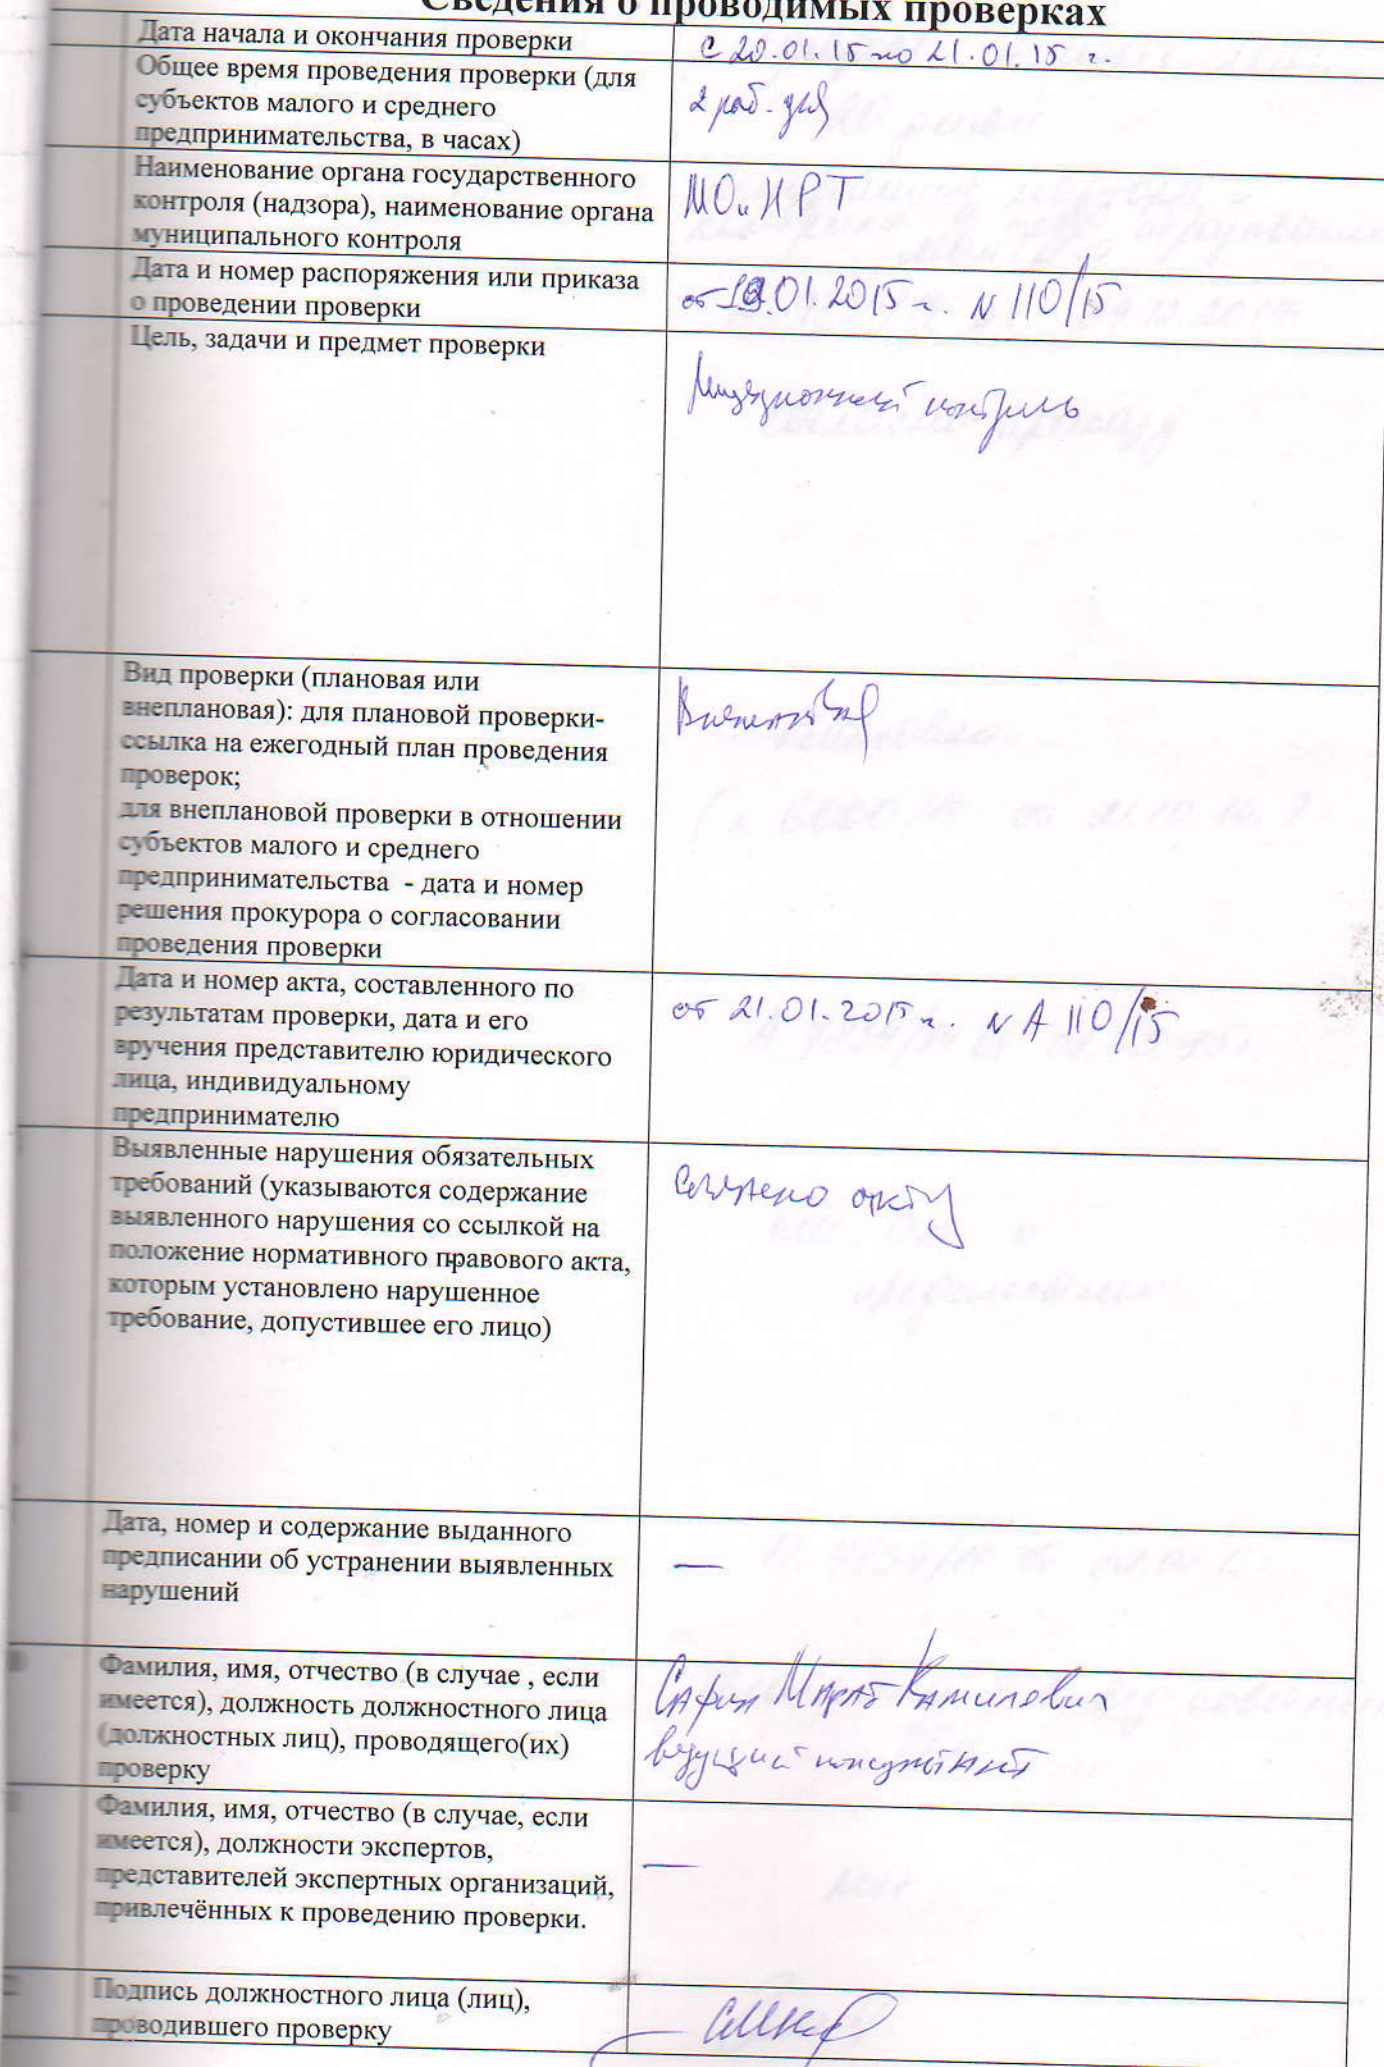 Сведения о проводимых проверках
Дата начала и окончания проверки
с 20.01.15 по 21.01.15 г.
Общее время проведения проверки (для
субъектов малого и среднего
предпринимательства, в часах)
2 раб. дня
Наименование органа государственного
контроля (надзора), наименование органа
муниципального контроля
МОиН РТ
Дата и номер распоряжения или приказа
о проведении проверки
от 19.01.2015 г. N 110/15
Цель, задачи и предмет проверки
Лицензионный контроль
Вид проверки (плановая или
внеплановая): для плановой проверки-
ссылка на ежегодный план проведения
проверок;
для внеплановой проверки в отношении
субъектов малого и среднего
предпринимательства - дата и номер
решения прокурора о согласовании
проведения проверки
Внеплановая
Дата и номер акта, составленного по
результатам проверки, дата и его
вручения представителю юридического
лица, индивидуальному
предпринимателю
от 21.01.2015 г. N А 110/15
Выявленные нарушения обязательных
требований (указываются содержание
выявленного нарушения со ссылкой на
положение нормативного правового акта,
которым установлено нарушенное
требование, допустившее его лицо)
Согласно акту
Дата, номер и содержание выданного
предписании об устранении выявленных
нарушений
—
Фамилия, имя, отчество (в случае , если
имеется), должность должностного лица
(должностных лиц), проводящего(их)
проверку
Сафин Марат Камилевич
ведущий консультант
Фамилия, имя, отчество (в случае, если
имеется), должности экспертов,
представителей экспертных организаций,
привлечённых к проведению проверки.
—
Подпись должностного лица (лиц),
проводившего проверку